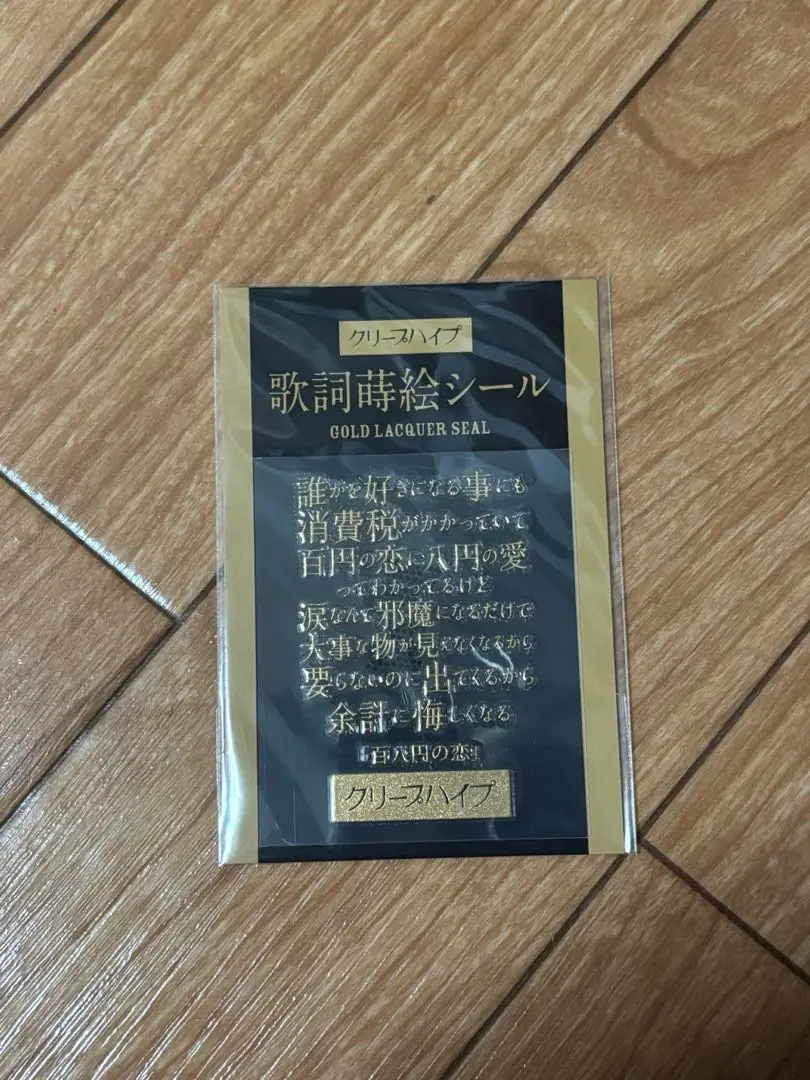 クリープハイプ
歌詞蒔絵シール
GOLD LACQUER SEAL
誰かを好きになる事にも
消費税がかかっていて
百円の恋に八円の愛
ってわかってるけど
涙なんて邪魔になるだけで
大事な物が見えなくなるから
要らないのに出てくるから
余計に悔しくなる
「百八円の恋」
クリープハイプ